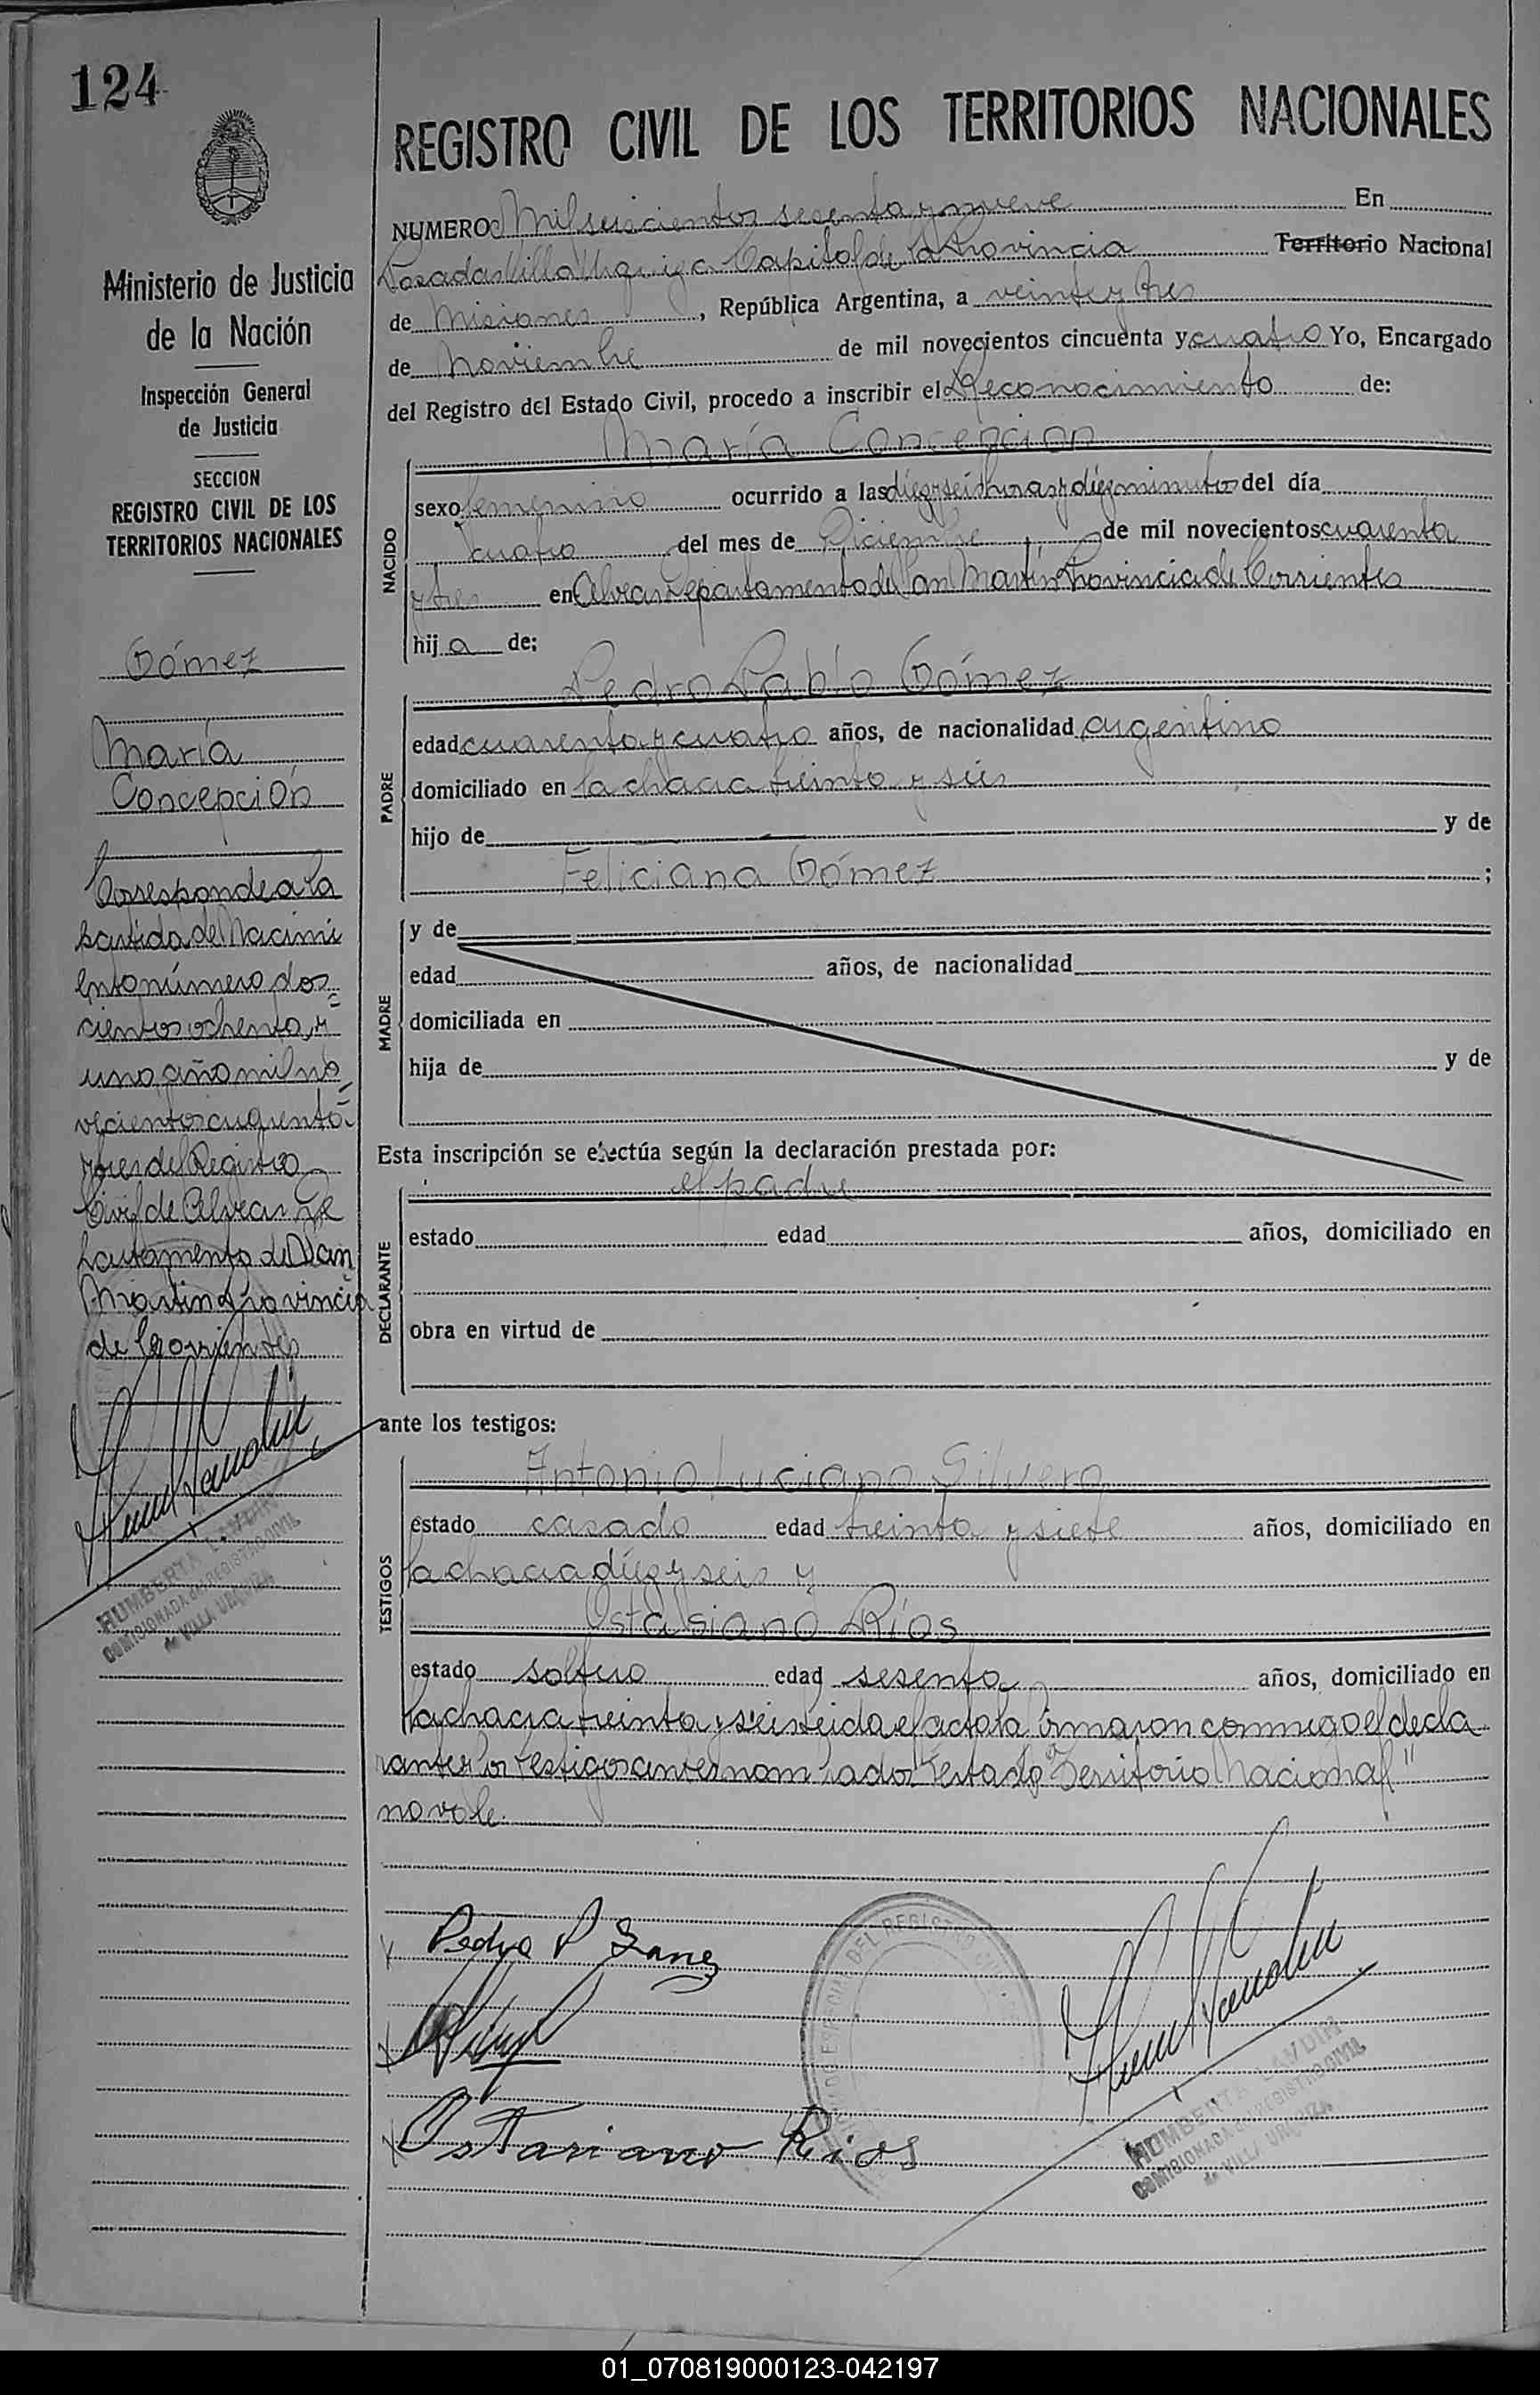 124
REGISTRO CIVIL DE LOS TERRITORIOS NACIONALES
NUMERO Mil seiscientos sesenta y nueve En
Posadas Villa Urquiza Capital de la Provincia Territorio Nacional
de Misiones, República Argentina, a veinte y tres
de Noviembre de mil novecientos cincuenta y cuatro Yo, Encargado
del Registro del Estado Civil, procedo a inscribir el Reconocimiento de:
María Concepción
NACIDO
sexo femenino ocurrido a las diez y seis horas y diez minutos del día
cuatro del mes de Diciembre de mil novecientos cuarenta
y tres en Alvear Departamento de San Martín Provincia de Corrientes
hija de:
PADRE
Pedro Pablo Gómez
edad cuarenta y cuatro años, de nacionalidad argentino
domiciliado en la chacra treinta y seis
hijo de y de
Feliciana Gómez ;
MADRE
y de
edad años, de nacionalidad
domiciliada en
hija de y de
Esta inscripción se efectúa según la declaración prestada por:
DECLARANTE
el padre
estado edad años, domiciliado en
obra en virtud de
ante los testigos:
TESTIGOS
Antonio Luciano Silvero
estado casado edad treinta y siete años, domiciliado en
la chacra diez y seis y
Ostasiano Ríos
estado soltero edad sesenta años, domiciliado en
la chacra treinta y seis leida el acta la firmaron conmigo el decla
rante y los testigos antes nombrados Testado "Territorio Nacional"
no vale.
Pedro P
Ostasiano Rios
HUMBERTA LANDIN
COMISIONADA del REGISTRO CIVIL
de VILLA URQUIZA
Ministerio de Justicia
de la Nación
Inspección General
de Justicia
SECCION
REGISTRO CIVIL DE LOS
TERRITORIOS NACIONALES
Gómez
María
Concepción
Corresponde a la
partida de Nacimi
ento número dos
cientos ochenta y
uno año mil no
vecientos cuarenta
y tres del Registro
Civil de Alvear De
partamento de San
Martin Provincia
de Corrientes
HUMBERTA LANDIN
COMISIONADA del REGISTRO CIVIL
de VILLA URQUIZA
01_070819000123-042197